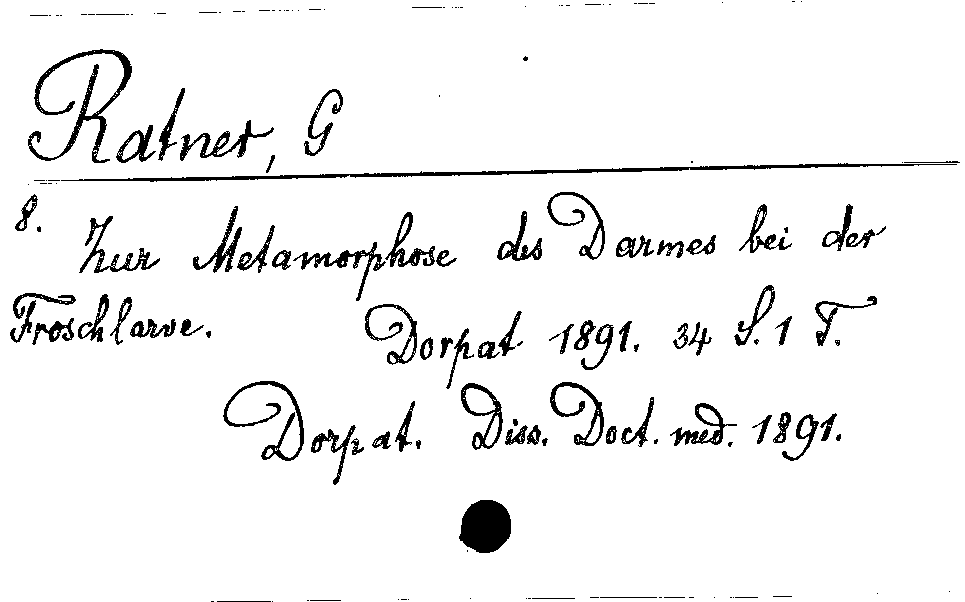 Ratner, G
8. Zur Metamorphose des Darmes bei der
Froschlarve. Dorpat 1891. 34 S. 1 T.
Dorpat. Diss. Doct. med. 1891.